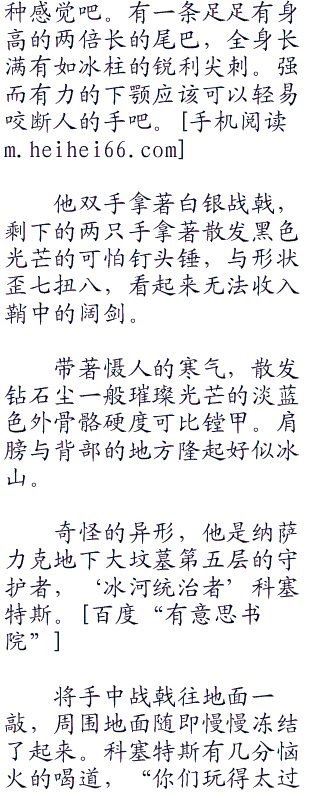 种感觉吧。有一条足足有身
高的两倍长的尾巴，全身长
满有如冰柱的锐利尖刺。强
而有力的下颚应该可以轻易
咬断人的手吧。[手机阅读
m.heihei66.com]
他双手拿著白银战戟，
剩下的两只手拿著散发黑色
光芒的可怕钉头锤，与形状
歪七扭八，看起来无法收入
鞘中的阔剑。
带著慑人的寒气，散发
钻石尘一般璀璨光芒的淡蓝
色外骨骼硬度可比镗甲。肩
膀与背部的地方隆起好似冰
山。
奇怪的异形，他是纳萨
力克地下大坟墓第五层的守
护者，‘冰河统治者’科塞
特斯。[百度“有意思书
院”]
将手中战戟往地面一
敲，周围地面随即慢慢冻结
了起来。科塞特斯有几分恼
火的喝道，“你们玩得太过